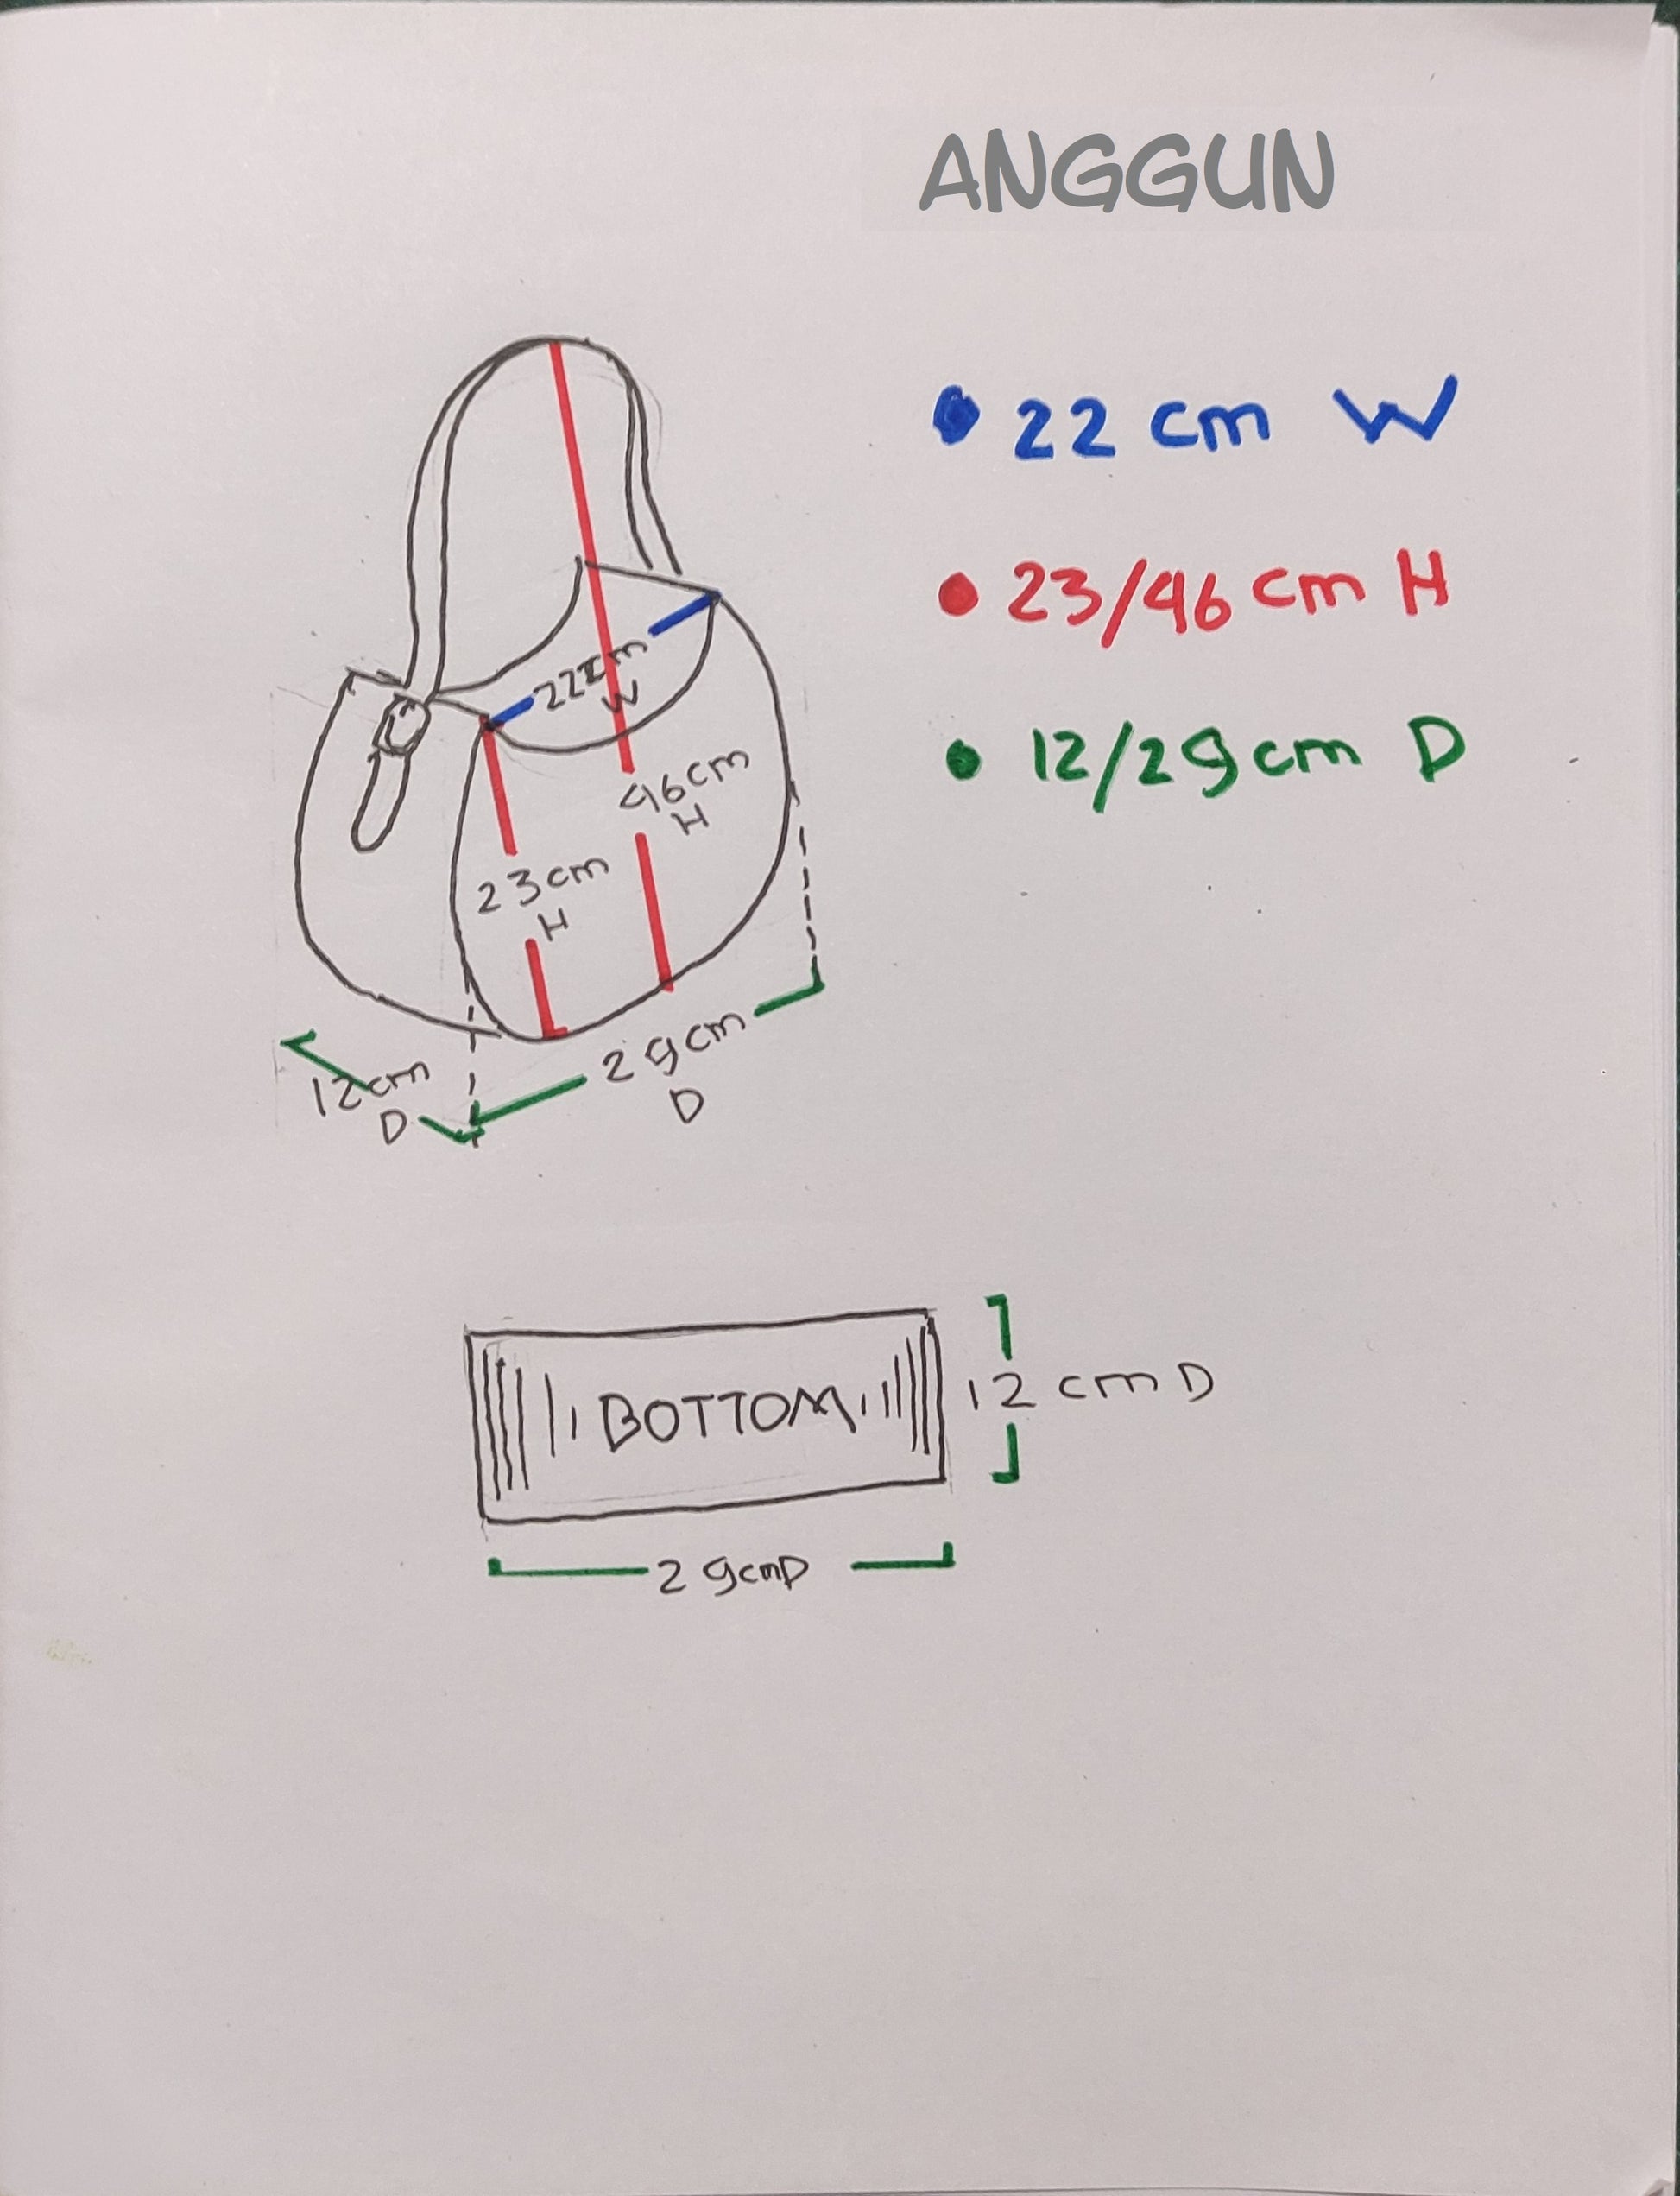 ANGGUN
22 cm W
23/46 cm H
12/29 cm D
22cm
W
46cm
H
23cm
H
29cm
D
12cm
D
BOTTOM
12 cm D
29cmD